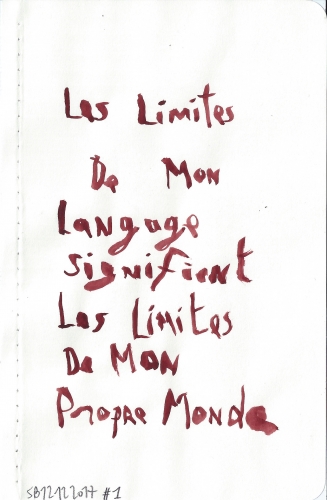 Les Limites
De Mon
Langage
signifient
Les Limites
De Mon
Propre Monde
SB12122017 #1